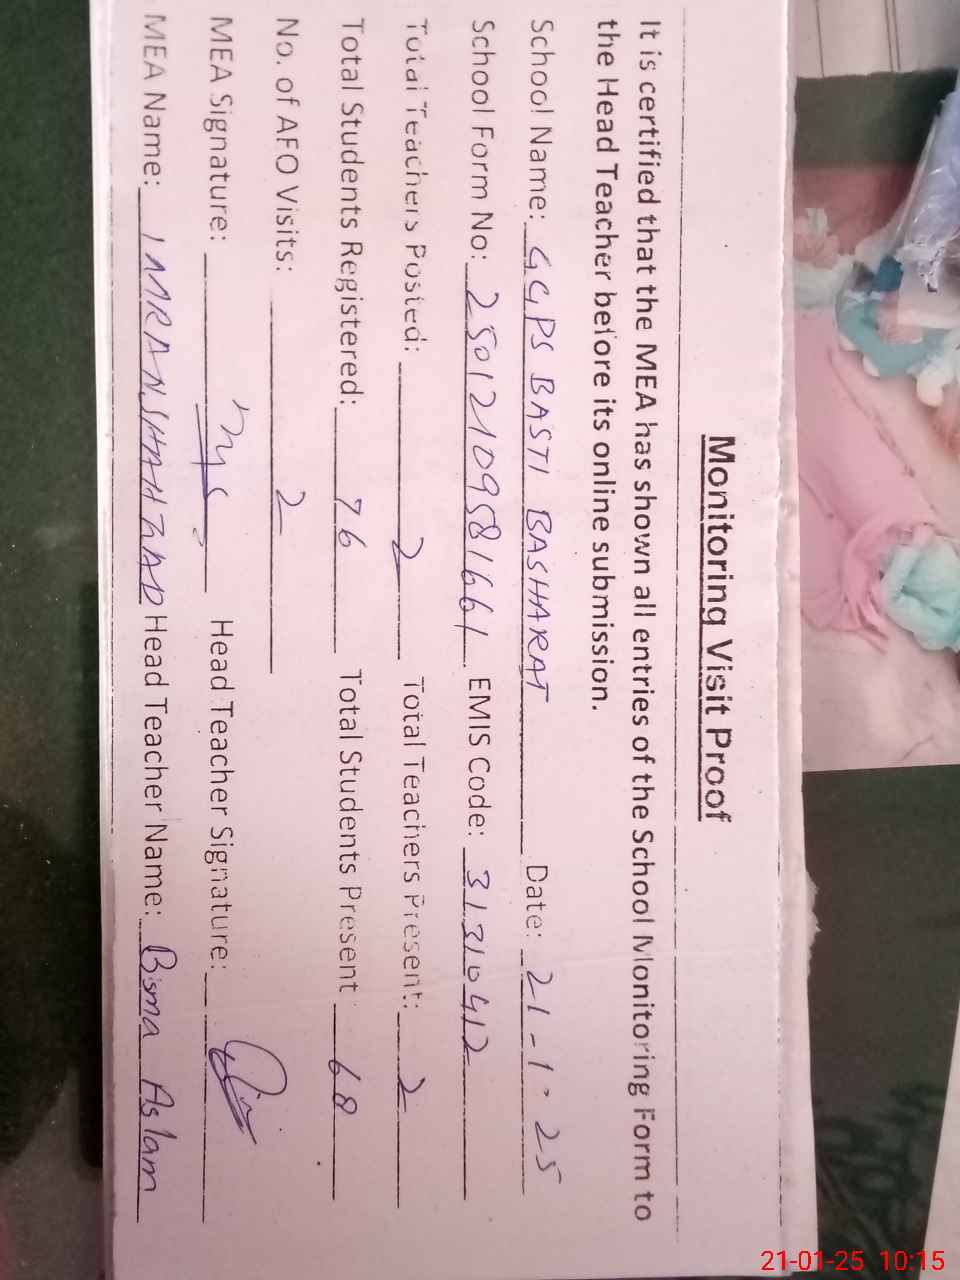 Monitoring Visit Proof
It is certified that the MEA has shown all entries of the School Monitoring Form to
the Head Teacher before its online submission.
School Name: GGPS BASTI BASHARAT Date: 21-1-25
School Form No: 25012109581661 EMIS Code: 31310412
Total Teachers Posted: 2 Total Teachers Present: 2
Total Students Registered: 76 Total Students Present 68
No. of AFO Visits: 2
MEA Signature: Head Teacher Signature:
MEA Name: IMRAN SHAHZAD Head Teacher Name: Bisma Aslam
21-01-25 10:15